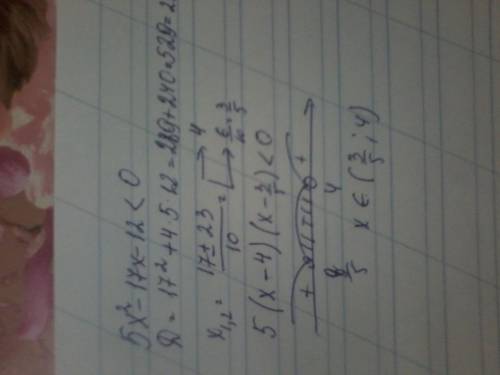 5x² - 17x - 12 < 0
D = 17² + 4·5·12 = 289 + 240 = 529 = 2
x₁,₂ = (17 ± 23)/10 = [ → 4 → 6/10 = 3/5
5(x - 4)(x - 3/5) < 0
+ - +
3/5 4
x ∈ (3/5 ; 4)